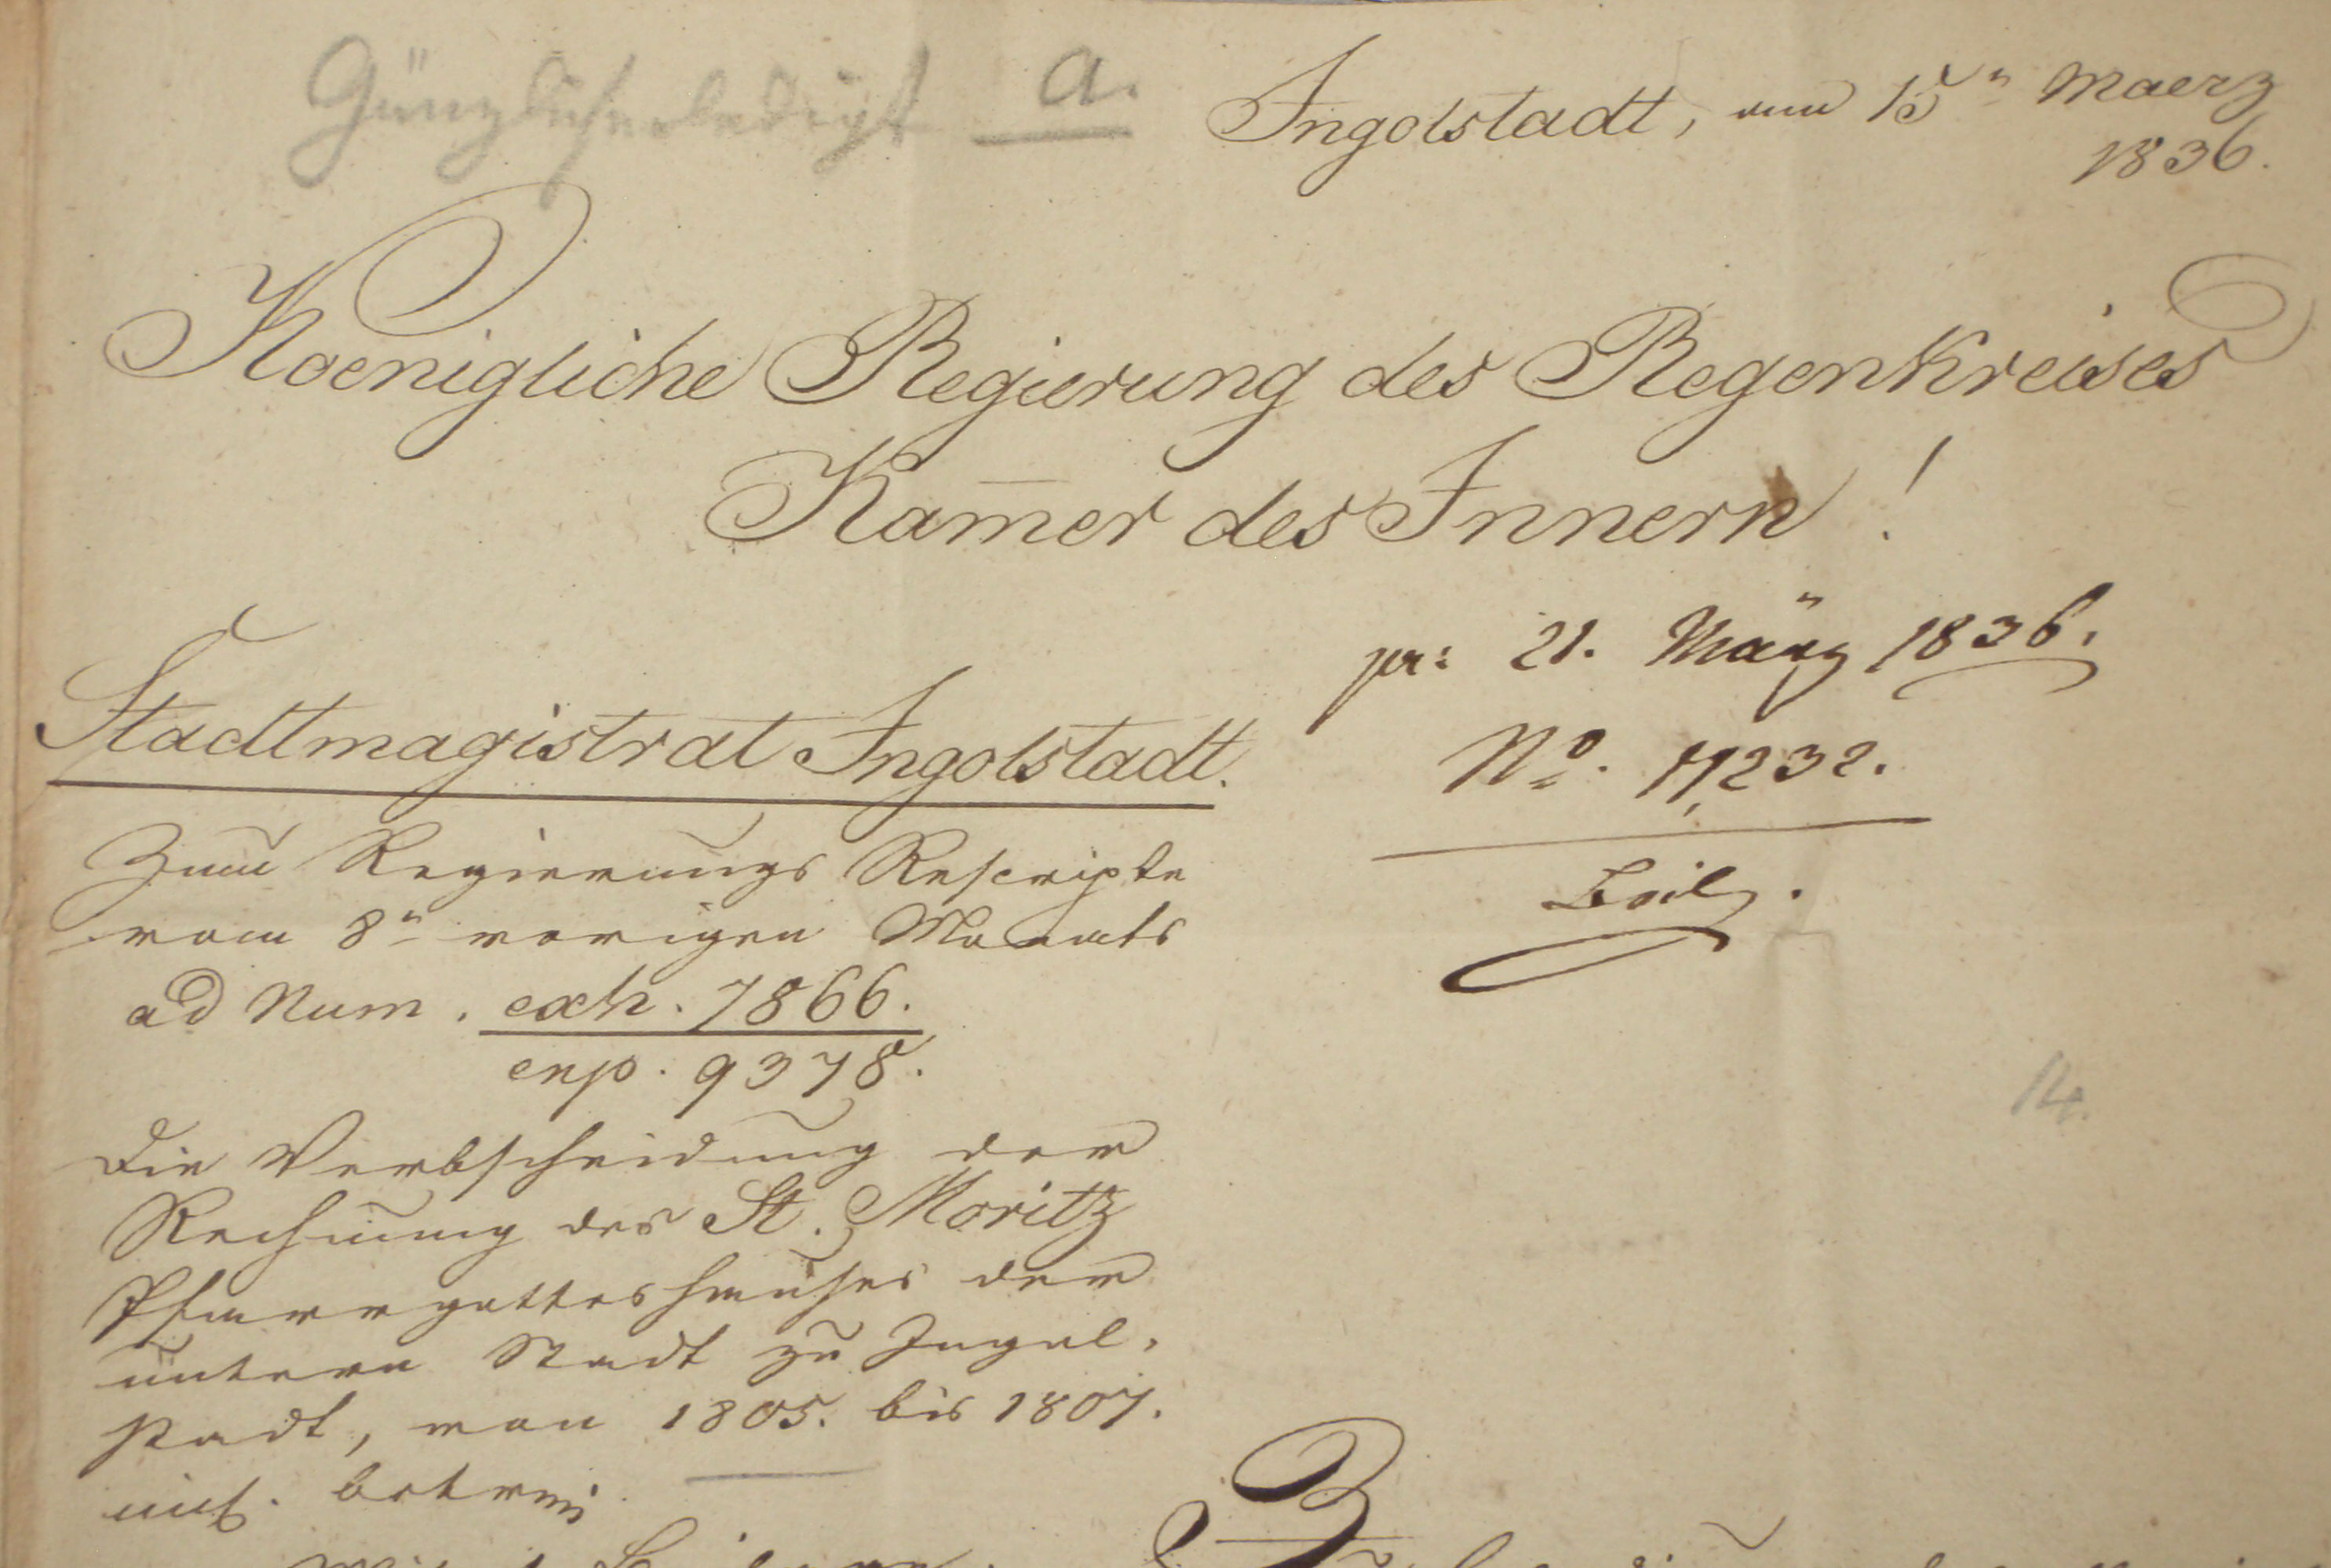 Gänzlich erledigt a.
Ingolstadt, am 15n Maerz
1836.
Koenigliche Regierung des Regenkreises
Kam̅er des Innern!
pr: 21. März 1836.
No. 17,232.
Beil.
Stadtmagistrat Ingolstadt.
Zum Regierungs Rescripte
vom 8n vorigen Monats
ad Num. exh. 7866.
exp. 9378.
Die Verbscheidung der
Rechnung des St. Moritz
Pfarrgotteshauses der
untern Stadt zu Ingol-
stadt, von 1805. bis 1807.
betrf.
14.